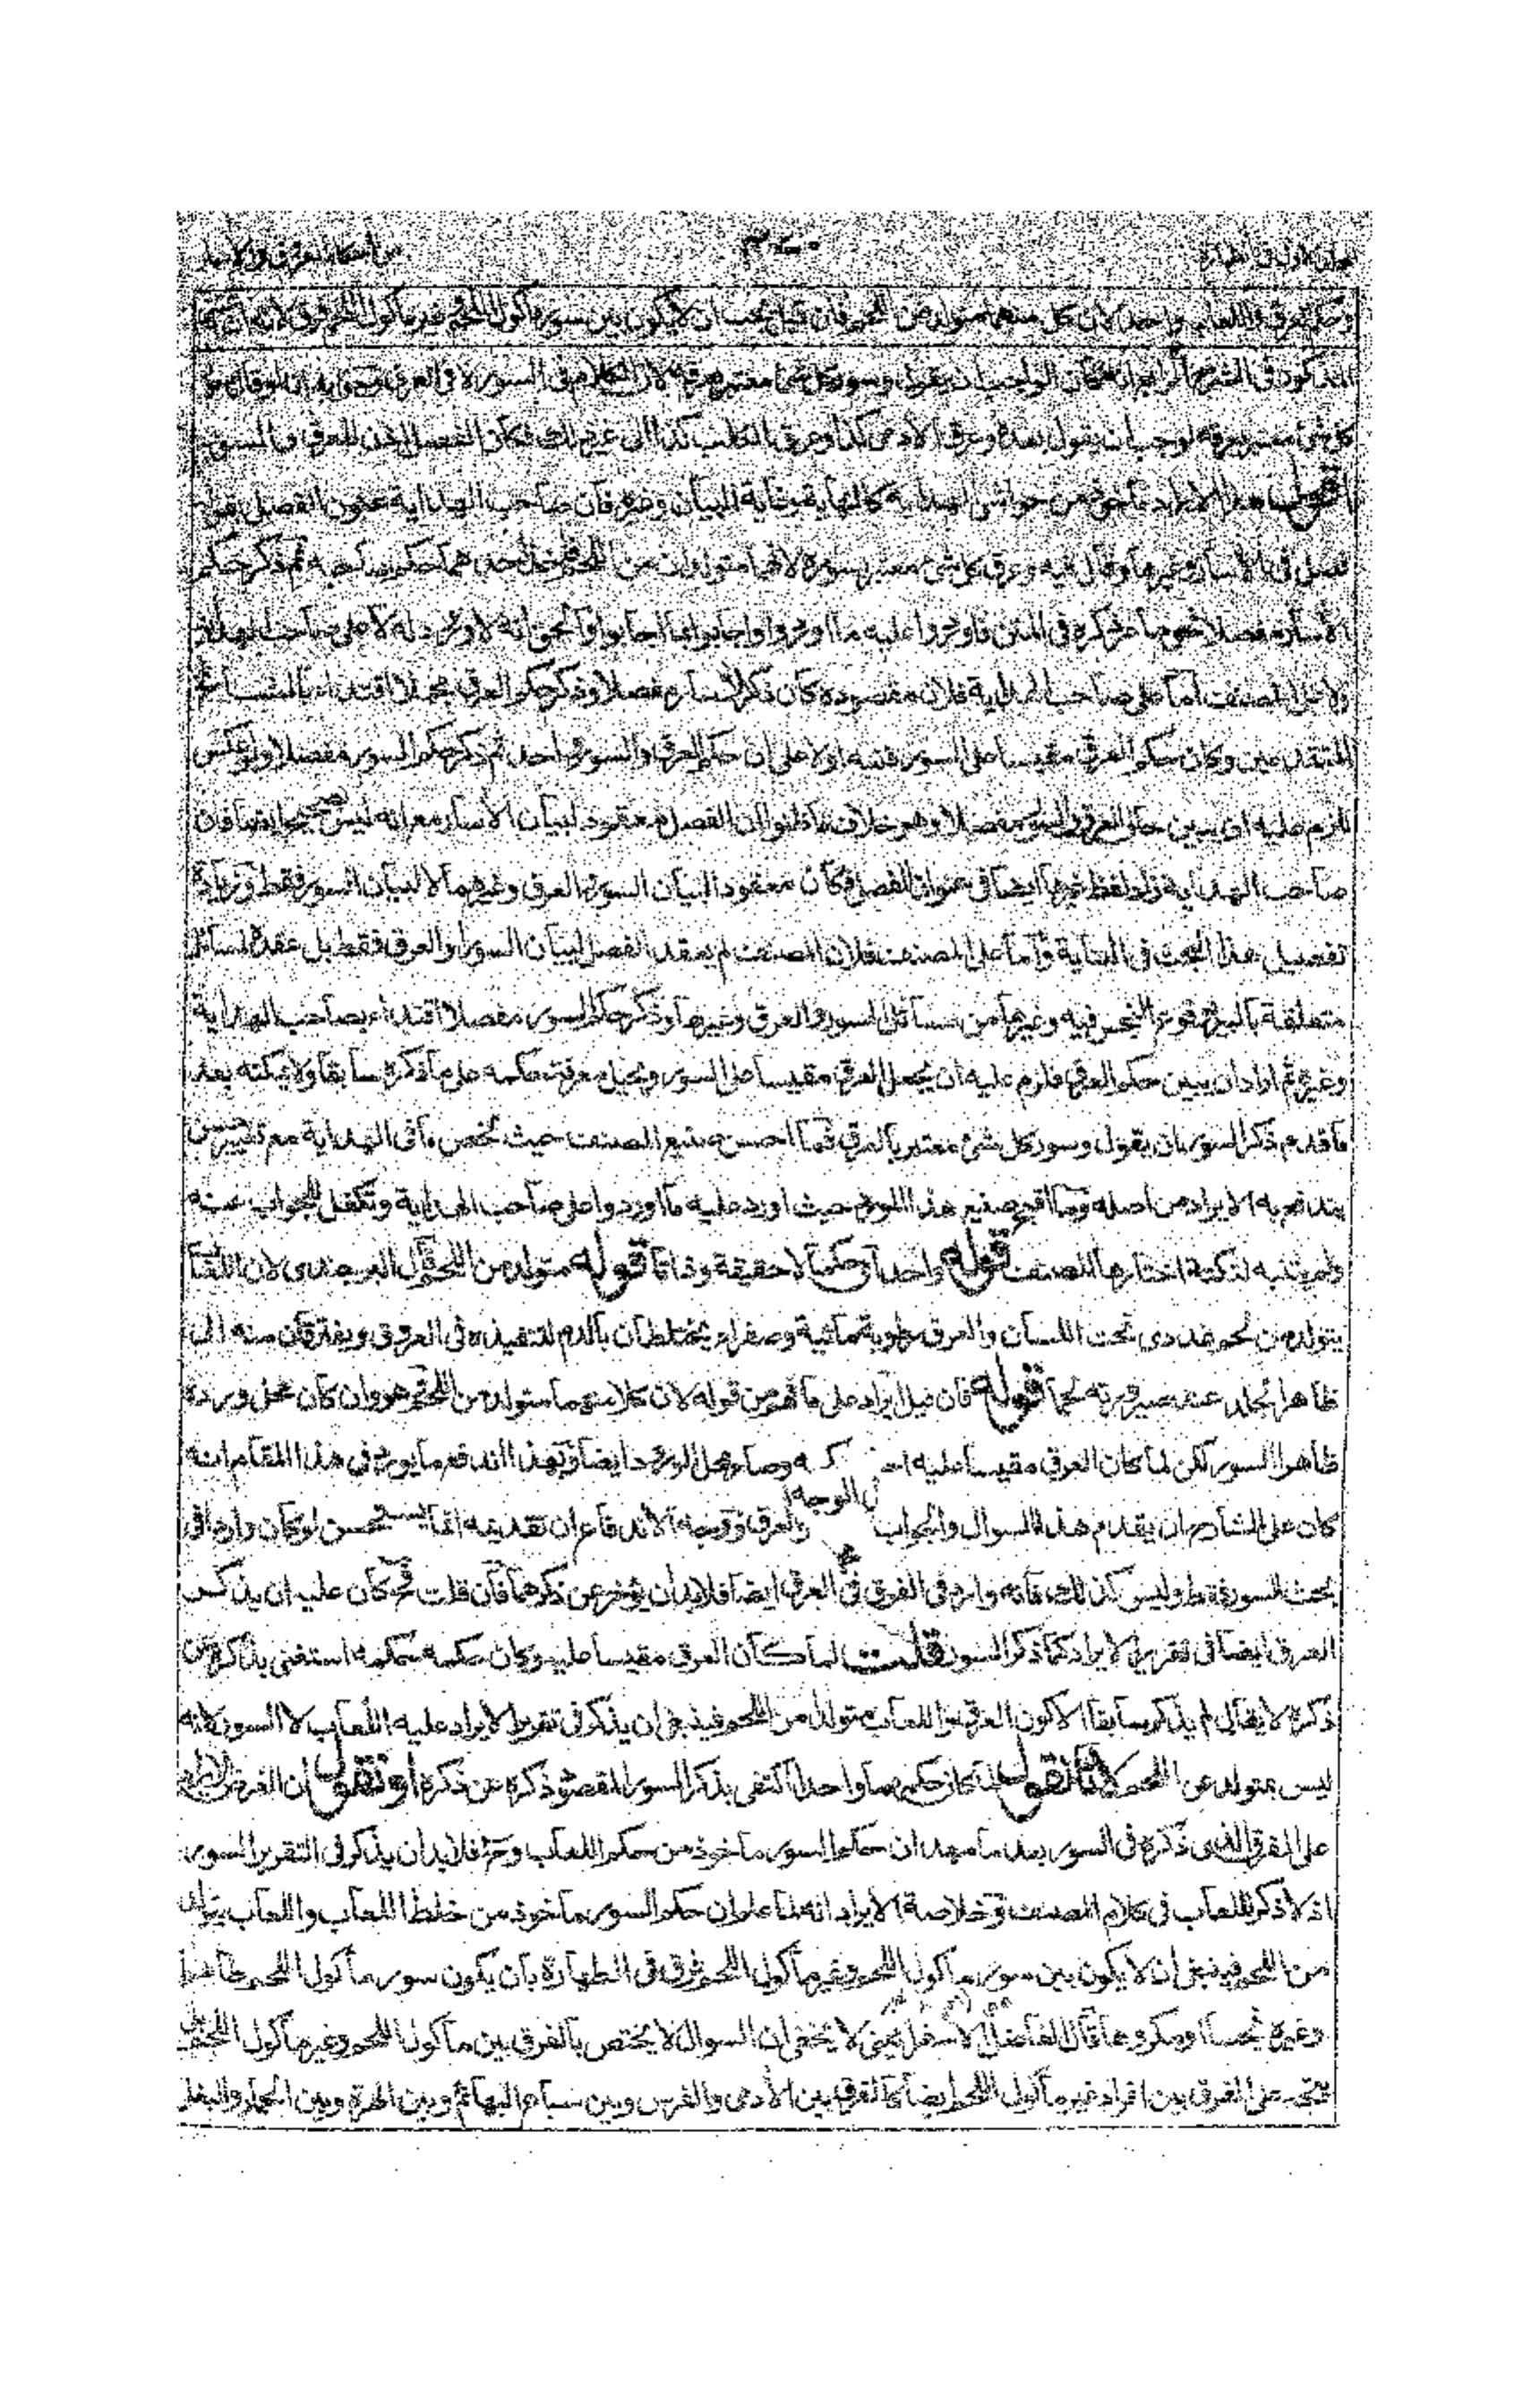 وحكم العرق واللعاب واحد لان كل منهما متولد من اللحم فان قيل يجب ان لا يكون بين سور ماكول اللحم وغير ماكول اللحم فرق لانه ان
المذكور فى الشرح ايرادا كان الواجب ان يقول وسور كل شئ معتبر بعرقه لان الكلام فى السور لا فى العرق وجوابه انه لو قال سور
كل شئ معتبر بعرقه لوجب ان يقول بعده وعرق الآدمى كذا وعرق الكلب كذا الى غير ذلك فكان الفصل اذن للعرق والسور
اقول هذا الايراد من حواشى الهداية كالنهاية وغاية البيان وغيره فان صاحب الهداية عنون الفصل بقوله
فصل فى الأسآر وغيرها وقال فيه وعرق كل شئ معتبر بسوره لانهما متولدان من لحمه فاخذ احدهما حكم صاحبه ثم ذكر حكم
الأسآر مفصلا فاوردوا عليه ما اوردوا واجابوا بما اجابوا والحق انه لا ورود له لا على صاحب الهداية
ولا على المصنف اما على صاحب الهداية فلان مقصوده كان ذكر الأسآر مفصلا وذكر حكم العرق مجملا اقتداء بالمشائخ
المتقدمين وكان حكم العرق مقيسا على السور فنبه اولا على ان حكم العرق والسور واحد ثم ذكر حكم السور مفصلا ولو عكس
للزم عليه ان يبين حال العرق والسور مفصلا وهو خلاف ما ظنوا ان الفصل معقود لبيان الأسآر مع انه ليس بصحيح ايضا فان
صاحب الهداية زاد لفظ غيرها ايضا فى عنوان الفصل فكان معقودا لبيان السور والعرق وغيرهما لا لبيان السور فقط وزيادة
تفصيل هذا البحث فى السعاية واما على المصنف فلان المصنف لم يعقد الفصل لبيان السور والعرق فقط بل عقده لمسائل
متعلقة بالبير ووقوع النجس فيه وغيرها من مسائل السور والعرق وغيرها وذكر حكم السور مفصلا اقتداء بصاحب الهداية
وغيره ثم اراد ان يبين حكم العرق فلزم عليه ان يجعل العرق مقيسا على السور ويحيل معرفة حكمه على ما ذكره سابقا ولا يمكنه بعد
ما قدم ذكر السور ان يقول وسور كل شئ معتبر بالعرق فما احسن صنيع المصنف حيث لخص ما فى الهداية مع تغيير حسن
يندفع به الايراد من اصله وما اقبح صنيع هذا اللوذعى حيث اورد عليه ما اوردوا على صاحب الهداية وتكفل للجواب عنه
ولم يتنبه لنكتة اختارها المصنف قوله واحد آه حكما لا حقيقة وذاتا قوله متولد من اللحم قال البرجندى لان اللعاب
يتولد من لحم غددى تحت اللسان والعرق رطوبة مائية وصفراء يختلطان بالدم لتنفيذه فى العروق ويفترقان منه الى
ظاهر الجلد عند صيرورته لحما قوله فان قيل ايراد على ما فهم من قوله لان كلا منهما متولد من اللحم وهو وان كان محل وروده
ظاهرا السور لكن لما كان العرق مقيسا عليه وصار محل الورود ايضا وبهذا اندفع ما يورد فى هذا المقام انه
كان على الشارح ان يقدم هذا السوال والجواب الوجه والعرق ووجه الاندفاع ان تقديمه انما يستحسن لو كان واردا فى
بحث السور فقط وليس كذلك فانه وارد فى الفرق فى العرق ايضا فلا بد ان يؤخر عن ذكرهما فان قلت فح كان عليه ان يذكر
العرق ايضا فى تقرير الايراد كما ذكر السور قلت لما كان العرق مقيسا عليه وكان حكمه كحكمه استغنى بذكره عن
ذكره لا يقال لم يذكر سابقا الا كون العرق واللعاب متولدا من اللحم فينبغى ان يذكر فى تقرير الايراد عليه اللعاب لا السور لانه
ليس بمتولد عن اللحم لانا نقول لما كان حكمهما واحدا اكتفى بذكر السور المقصود ذكره عن ذكره او نقول ان الغرض الايراد
على الفرق الذى ذكره فى السور بعد ما مهد ان حكم السور ماخوذ من حكم اللعاب وح فلا بد ان يذكر فى التقرير السور
اذ لا ذكر للعاب فى كلام المصنف وخلاصة الايراد انه لما علم ان حكم السور ماخوذ من خلط اللعاب واللعاب يتولد
من اللحم فينبغى ان لا يكون بين سور ماكول اللحم وغير ماكول اللحم فرق فى الطهارة بان يكون سور ماكول اللحم طاهرا
وغيره نجسا او مكروها قال الفاضل الاسفرائينى لا يخفى ان السوال لا يختص بالفرق بين ماكول اللحم وغير ماكول اللحم بل
يتجه على الفرق بين افراد غير ماكول اللحم ايضا كالفرق بين الآدمى والفرس وبين سباع البهائم وبين الهرة وبين الحمار والبغل